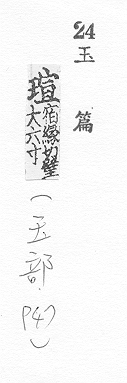 24 玉篇
瑄 宿緣切璧
大六寸
(玉部 P47)